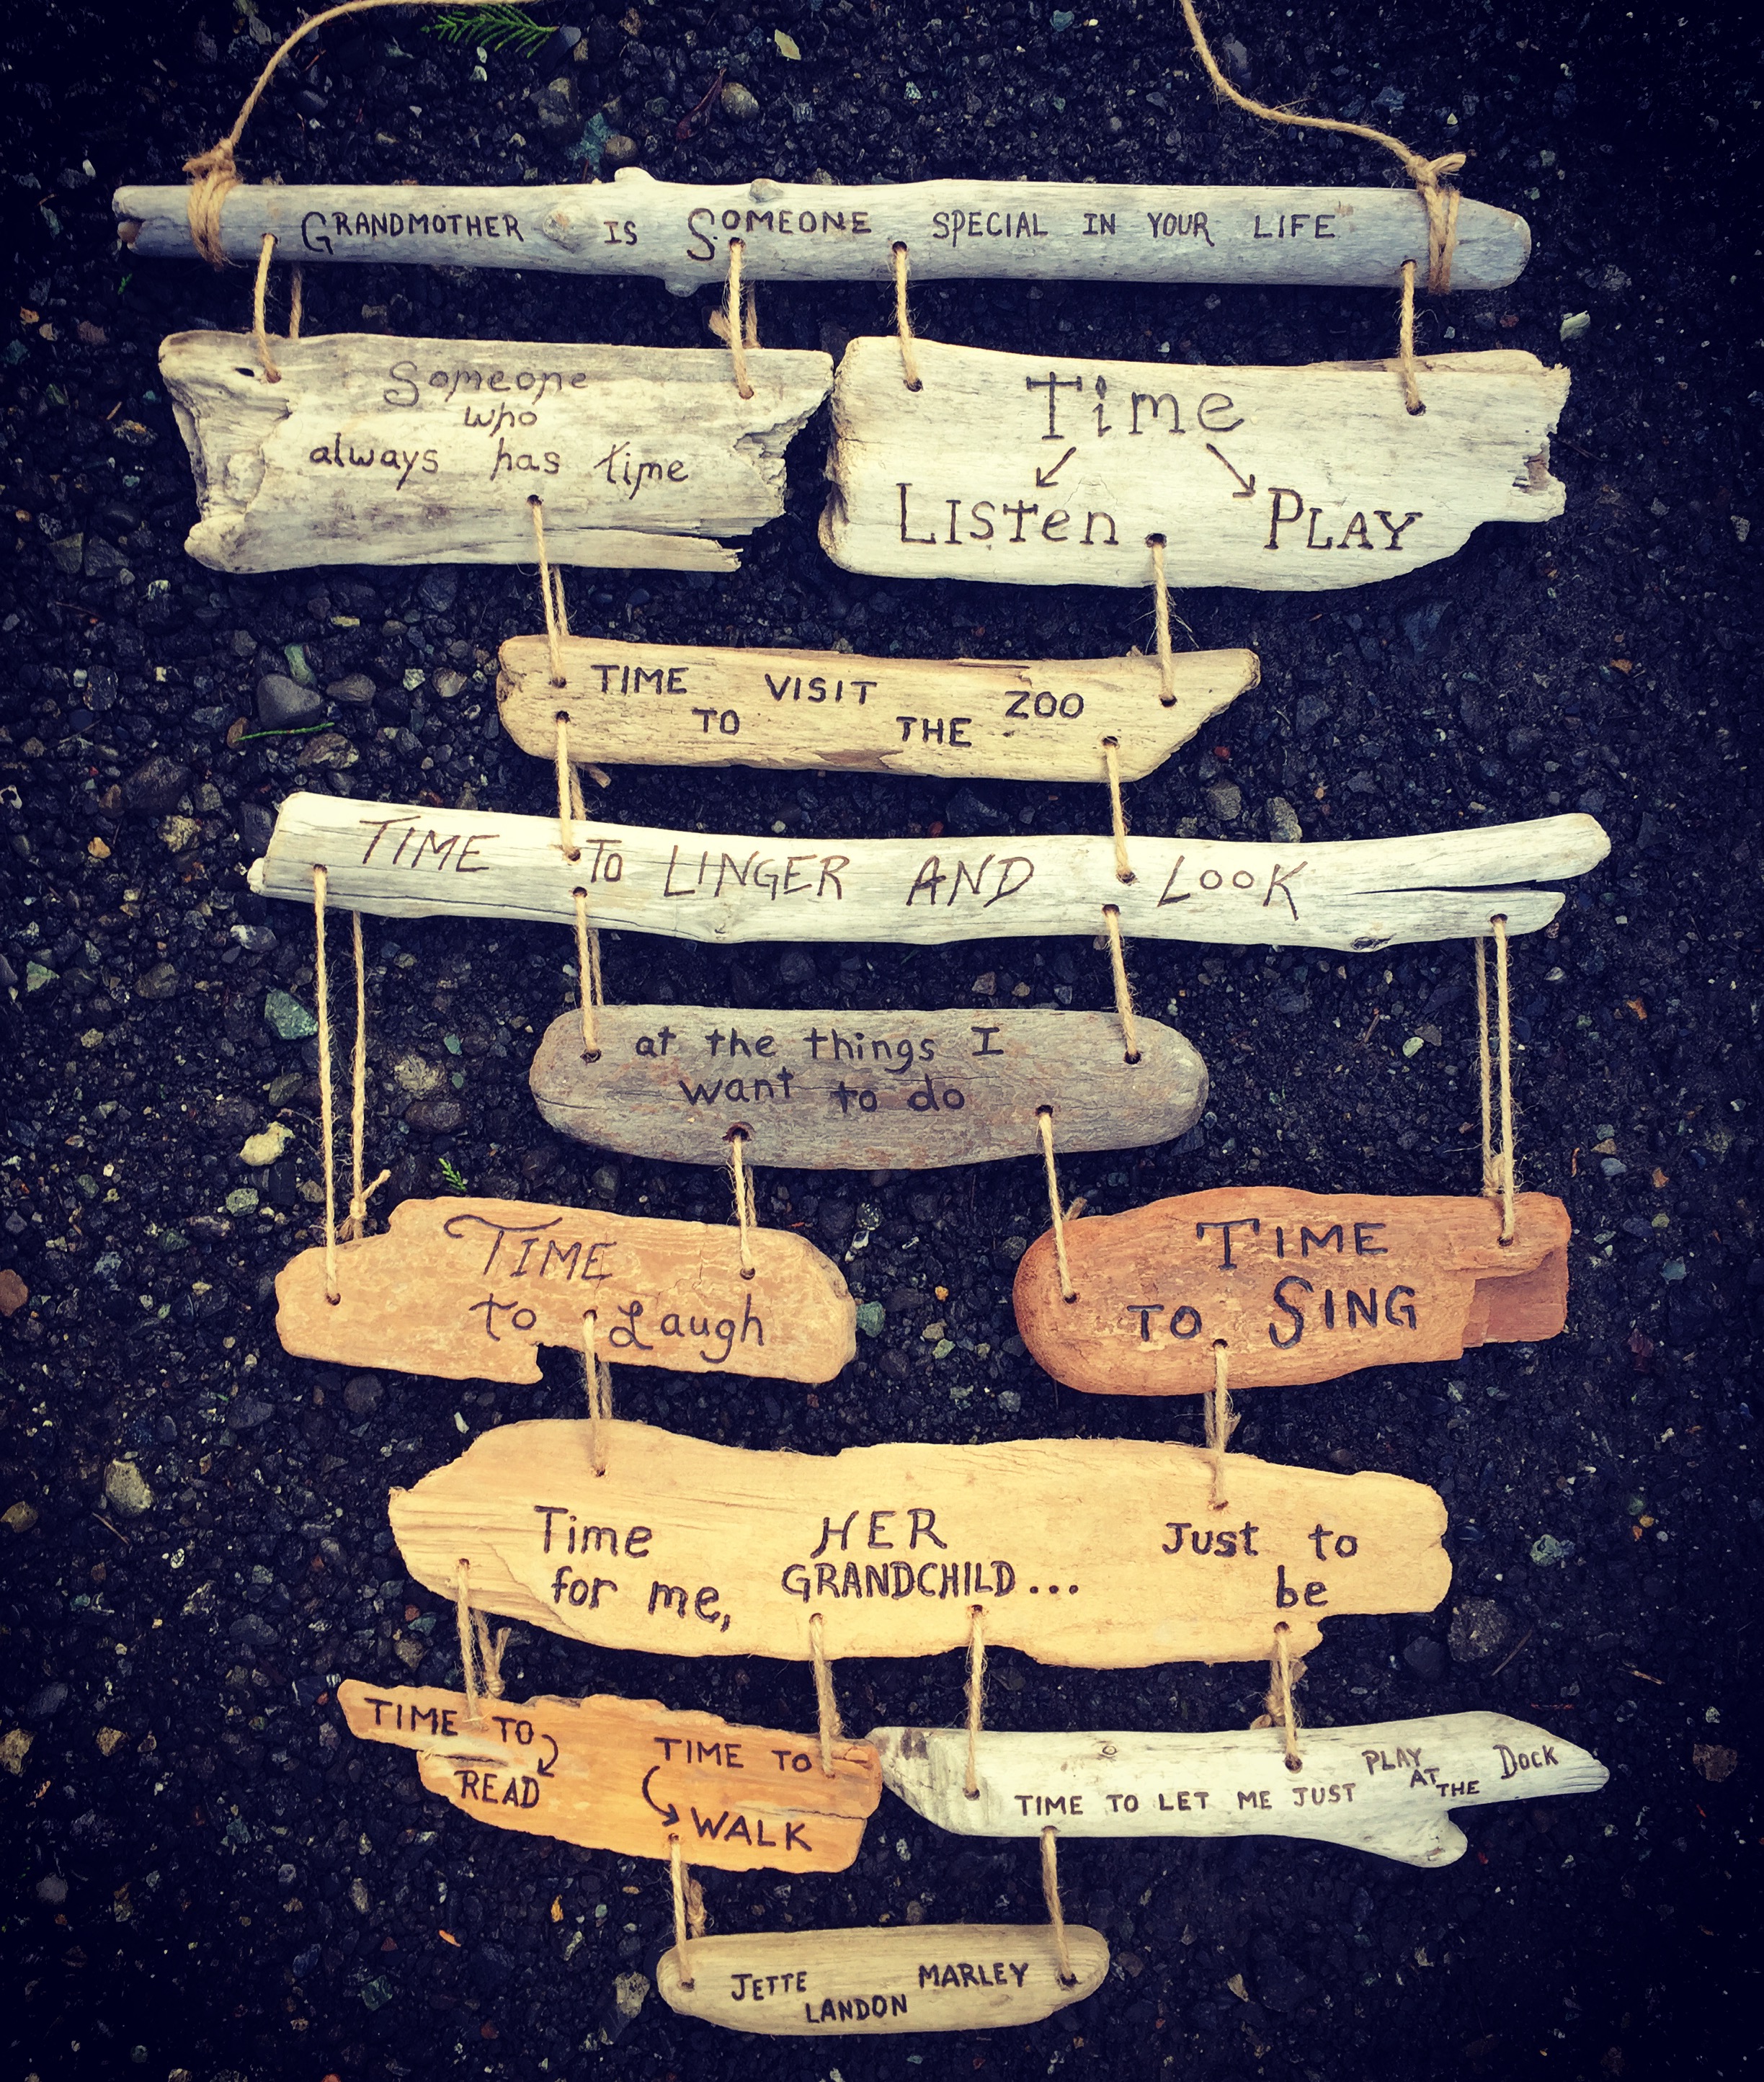 GRANDMOTHER IS SOMEONE SPECIAL IN YOUR LIFE
Someone
who
always has time
Time
Listen PLAY
TIME TO VISIT THE ZOO
TIME TO LINGER AND LOOK
at the things I
want to do
TIME
to Laugh
TIME
TO SING
Time
for me,
HER
GRANDCHILD...
Just to
be
TIME TO
READ
TIME TO
WALK
TIME TO LET ME JUST PLAY AT THE DOCK
JETTE LANDON MARLEY